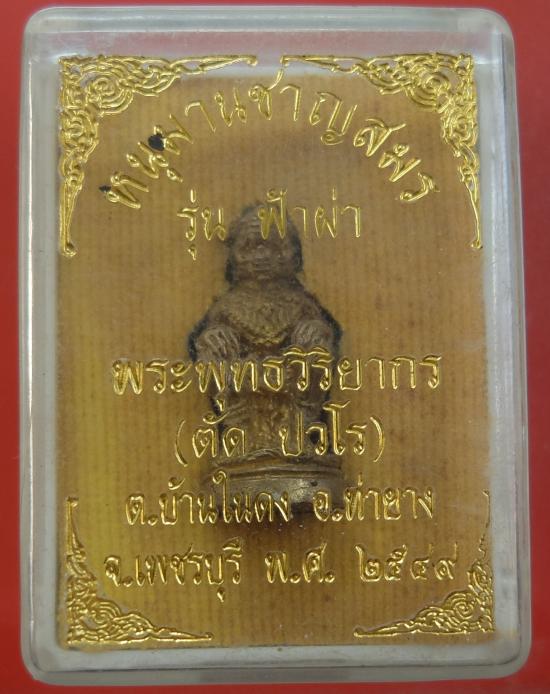 หนุมานชาญสมร
รุ่น ฟ้าผ่า
พระพุทธวิริยากร
(ตัด ปวโร)
ต.บ้านในดง อ.ท่ายาง
จ.เพชรบุรี พ.ศ. ๒๕๔๙